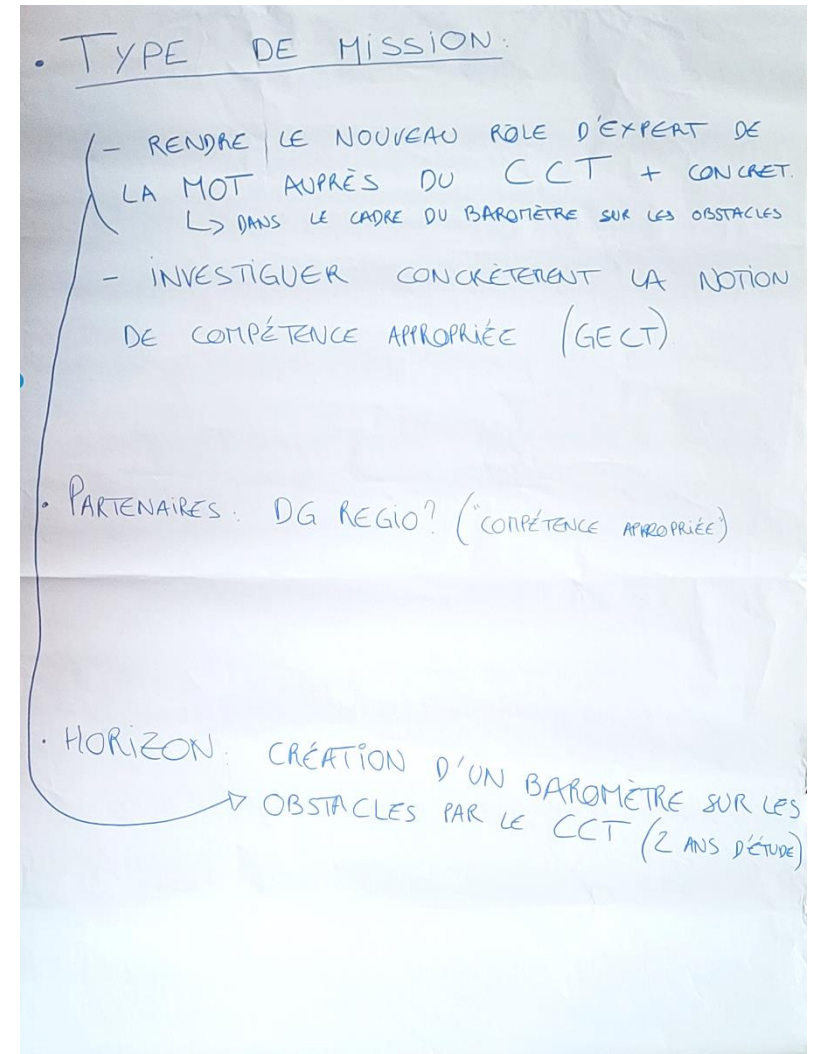 • TYPE DE MISSION:
- RENDRE LE NOUVEAU RÔLE D'EXPERT DE
LA MOT AUPRÈS DU CCT + CONCRET.
↳ DANS LE CADRE DU BAROMÈTRE SUR LES OBSTACLES
- INVESTIGUER CONCRÈTEMENT LA NOTION
DE COMPÉTENCE APPROPRIÉE (GECT)
• PARTENAIRES: DG REGIO? ("COMPÉTENCE APPROPRIÉE")
• HORIZON: CRÉATION D'UN BAROMÈTRE SUR LES
OBSTACLES PAR LE CCT (2 ANS D'ÉTUDE)